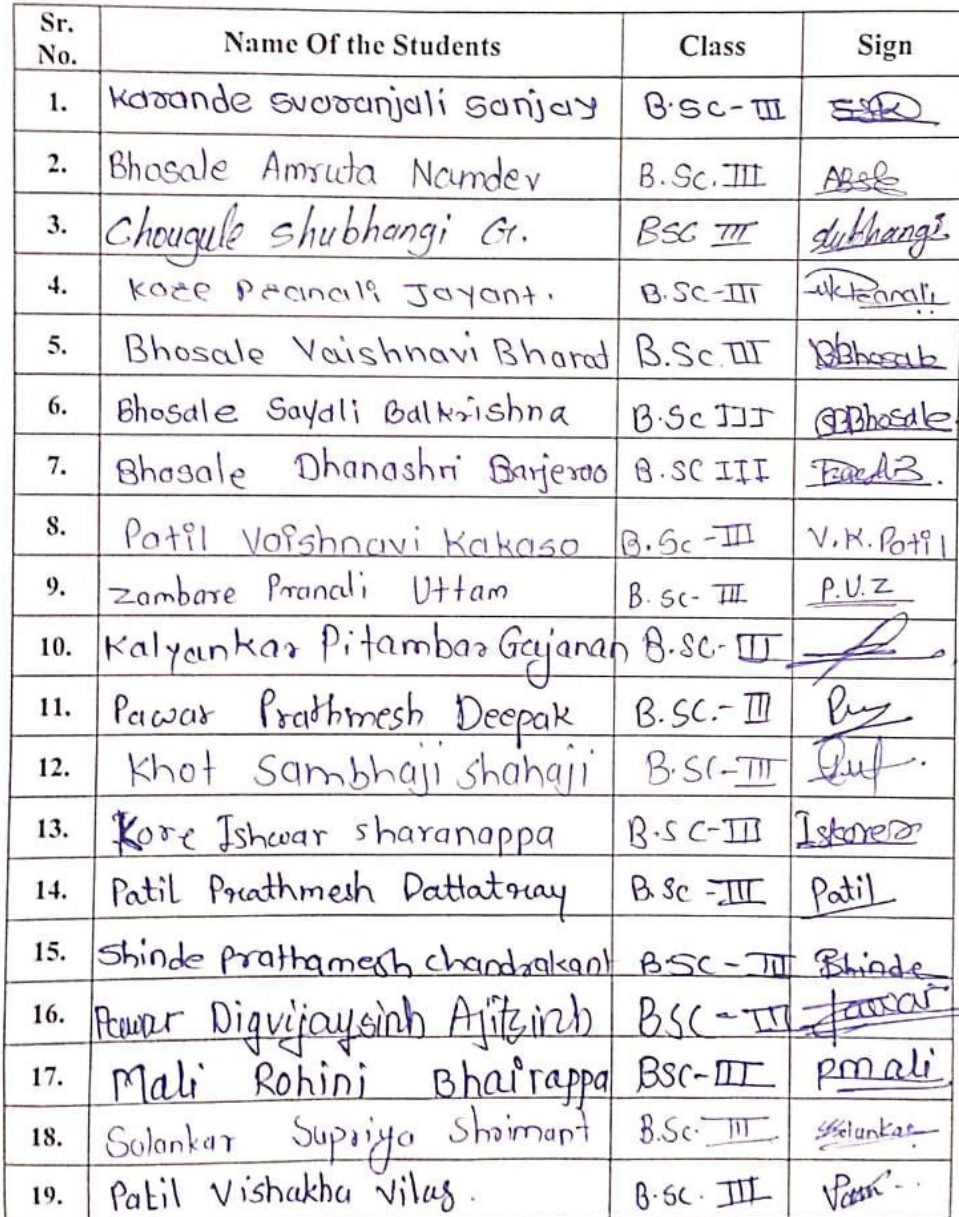 Sr. No. Name Of the Students Class Sign
1. Karande Svaranjali Sanjay B.SC-III
2. Bhosale Amruta Namdev B.Sc.III
3. Chougule Shubhangi G. BSC III Shubhangi
4. Kore Pranali Jayant. B.SC-III
5. Bhosale Vaishnavi Bharat B.Sc III BBhosale
6. Bhosale Sayali Balkrishna B.Sc III SBBhosale
7. Bhosale Dhanashri Barjerao B.SC III
8. Patil Vaishnavi Kakaso B.Sc-III V.K.Patil
9. Zambare Pranali Uttam B.Sc-III P.U.Z
10. Kalyankar Pitambar Gajanan B.SC-III
11. Pawar Prathmesh Deepak B.SC.-III
12. Khot Sambhaji Shahaji B.SC-III
13. Kore Ishwar Sharanappa B.SC-III
14. Patil Prathmesh Dattatray B.Sc-III Patil
15. Shinde Prathamesh Chandrakant B.SC-III Shinde
16. Pawar Digvijaysinh Ajitsinh BSC-III Pawar
17. Mali Rohini Bhairappa BSC-III RMali
18. Solankar Supriya Shrimant B.Sc. III SSolankar
19. Patil Vishakha Vilas. B.SC. III